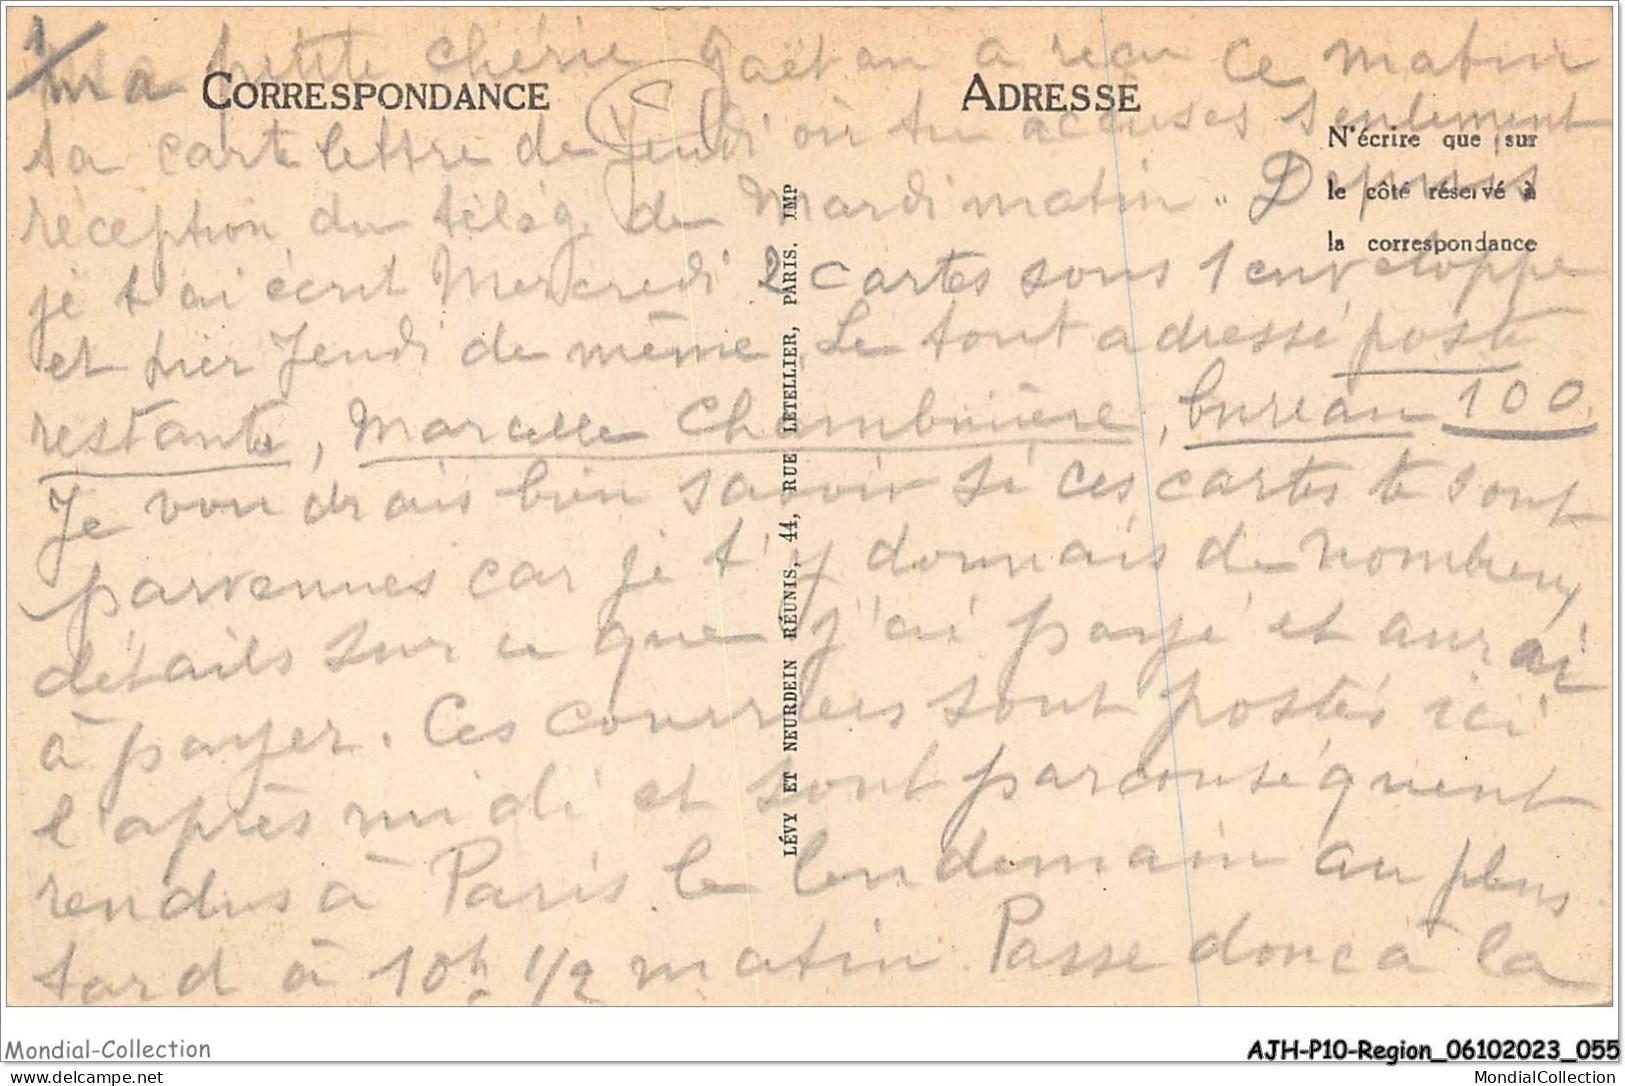 1/
Ma petite chérie Gaëtan a reçu ce matin
CORRESPONDANCE
ADRESSE
ta carte lettre de Jeudi où tu accuses seulement
N'écrire que sur
le côté réservé à
la correspondance
réception du télég. de Mardi matin.. Depuis
je t'ai écrit Mercredi 2 cartes sous 1 enveloppe
et hier Jeudi de même. Le tout adressé poste
restante, Marcelle Chambrière, bureau 100
Je voudrais bien savoir si ces cartes te sont
parvenues car je t'y donnais de nombreux
détails sur ce que j'ai payé et aurai
à payer. Ces courriers sont postés ici
l'après midi et sont par conséquent
rendus à Paris le lendemain au plus
tard à 10h 1/2 matin. Passe donc à la
LÉVY ET NEURDEIN RÉUNIS, 44, RUE LETELLIER, PARIS. IMP
Mondial-Collection
AJH-P10-Region_06102023_055
www.delcampe.net
MondialCollection